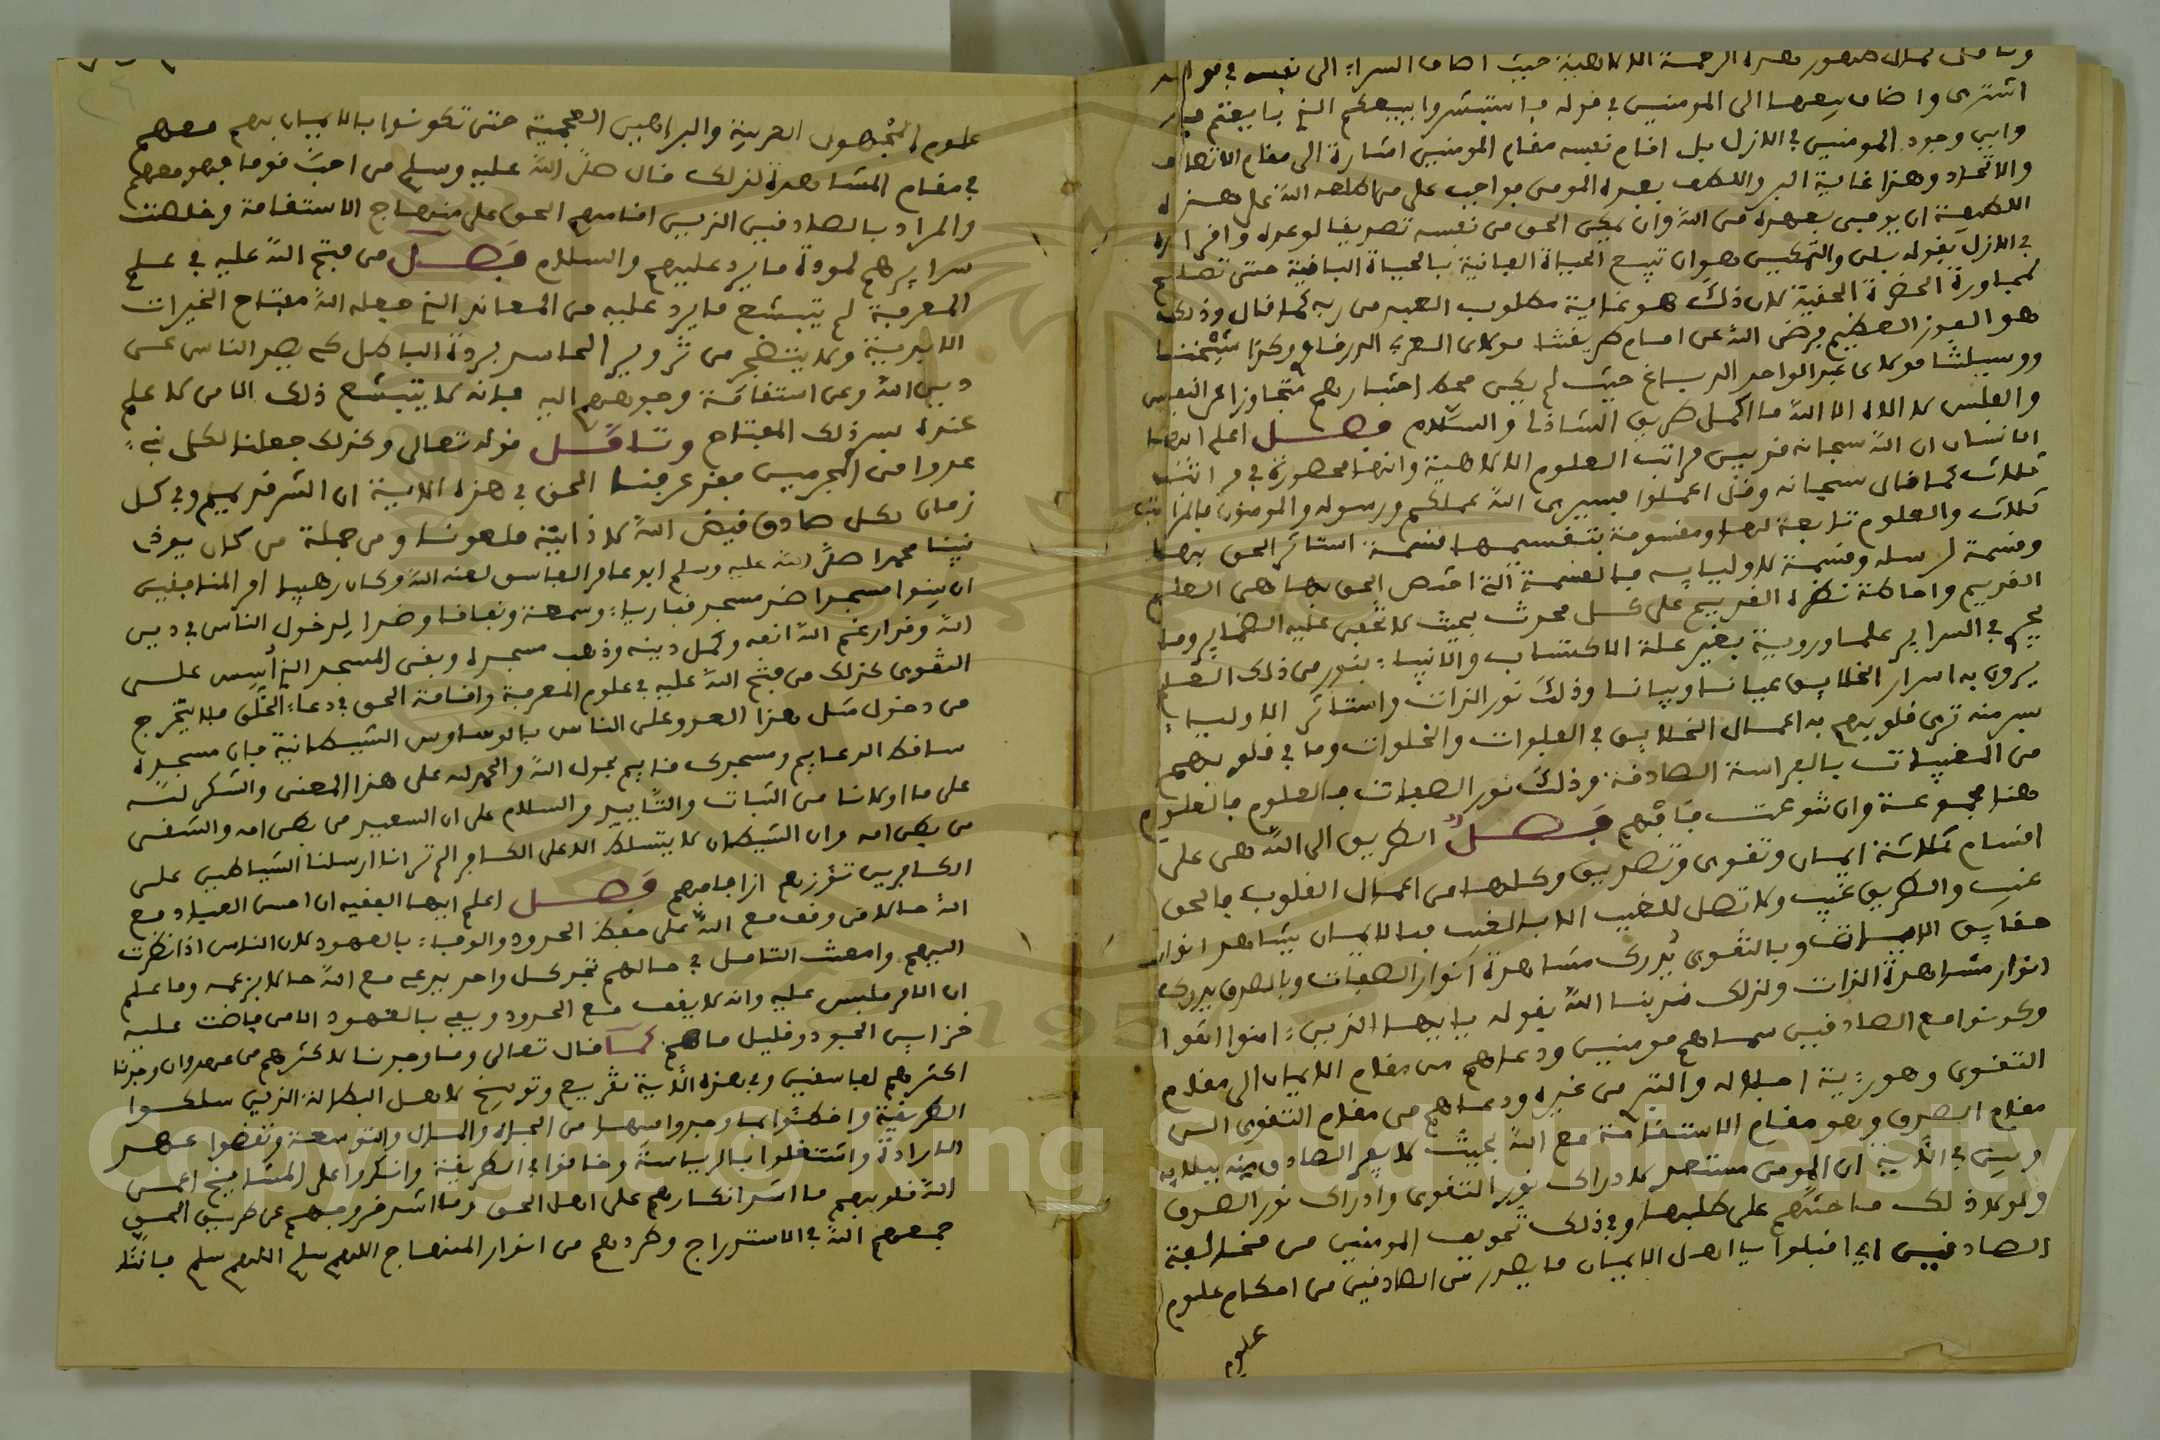 وتامل كمال ظهور هذه الرحمة الالاهية حيث اضاف الشراء الى نفسه في قوله
اشترى واضاف بيعها الى المومنين في قوله فاستبشروا ببيعكم الذي بايعتم به
واين وجود المومنين في الازل بل اقام نفسه مقام المومنين اشارة الى مقام الاتصاف
والاتحاد وهذا غاية البر واللطف بعبده المومن فواجب على من اطلعه الله على هذه
اللطيفة ان يوفي بعهده من الله وان يمكن الحق من نفسه تصديقا لوعده واقراره
في الازل بقوله بلى والتمكين هو ان تبيع الحياة الفانية بالحياة الباقية حتى تصلح
لمجاورة الحضرة الحقية لان ذلك هو غاية مطلوب العبد من ربه كما قال وذلك
هو الفوز العظيم فرضي الله عن امام طريقتنا مولاي العربي الدرقاوي وكذا شيخنا
ووسيلتنا مولاي عبد الواحد الدباغ حيث لم يكن محط اختبارهم متجاوزا عن النفس
والفلس لا اله الا الله ما اكمل طريق الشاذلي والسلام فصل اعلم ايها
الانسان ان الله سبحانه قد بين مراتب العلوم الالاهية وانها محصورة في مراتب
ثلاث كما قال سبحانه وقل اعملوا فسيرى الله عملكم ورسوله والمومنون فالمراتب
ثلاث والعلوم تابعة لها ومقسومة بتقسيمها قسمة استاثر الحق بها
وقسمة لرسله وقسمة لاوليايه فالقسمة التي اختص الحق بها هي العلم
القديم واحاطة نظره القديم على كل محدث بحيث لا تخفى عليه الضماير وما
يجري في السراير علما وروية بغير علة الاكتساب والانبياء بنور من ذلك العلم
يرون به اسرار الخلايق عيانا وبيانا وذلك نور الذات واستاثر الاولياء
بسر منه ترى قلوبهم به اعمال الخلايق في الفلوات والخلوات وما في قلوبهم
من المغيبات بالفراسة الصادقة وذلك نور الصفات فالعلوم فالعلوم
هنا مجموعة وان تنوعت فافهم فصل الطريق الى الله هي على
اقسام ثلاثة ايمان وتقوى وتصديق وكلها من اعمال القلوب فالحق
غيب والطريق غيب ولا تصل للغيب الا بالغيب فبالايمان يشاهد انوار
حقايق الايمان وبالتقوى يدرك مشاهدة انوار الصفات وبالصدق يدرك
انوار مشاهدة الذات ولذلك قربنا الله بقوله يا ايها الذين ءامنوا اتقوا
وكونوا مع الصادقين سماهم مومنين ودعاهم من مقام الايمان الى مقام
التقوى وهو رءية اجلاله والتبري من غيره ودعاهم من مقام التقوى الى
مقام الصدق وهو مقام الاستقامة مع الله بحيث لا يفر الصادق منه ببلايه
وبين في الاية ان المومن مستعد لادراك نور التقوى وادراك نور الصدق
ولولا ذلك ما حثهم على طلبها وفي ذلك تخويف المومنين من مخالفة
الصادقين اي اقبلوا يا اهل الايمان ما يصدر من الصادقين من احكام علوم
علوم
علوم المجهول الغريبة والبراهين العجيبة حتى تكونوا بالايمان بهم معهم
في مقام المشاهدة لذلك قال صلى الله عليه وسلم من احب قوما فهو معهم
والمراد بالصادقين الذين اقامهم الحق على منهاج الاستقامة وخلصت
سرايرهم لمودة ما يرد عليهم والسلام فصل من فتح الله عليه في علم
المعرفة لم يتبشع ما يرد عليه من المعاند الذي جعله الله مفتاح الخيرات
الابدية ولا يتضجر من تزوير الحاسد بردة الباطل كي يصد الناس عن
دين الله وعن استقامة وجوههم اليه فانه لا يتبشع ذلك الا من لا علم
عنده بسر ذلك المفتاح وتامل قوله تعالى وكذلك جعلنا لكل نبيء
عدوا من المجرمين فقد عرفنا الحق في هذه الاية ان الشر قديم وفي كل
زمان لكل صادق قيض الله لاذايته ملعونا ومن جملة من كان يوذي
نبينا محمدا صلى الله عليه وسلم ابو عامر الفاسق لعنه الله وكان رهيبا امر المنافقين
ان يبنوا مسجدا ضد مسجد قبا رياء وسمعة ونفاقا وضرا لدخول الناس في دين
الله وقد ارغم الله انفه وكمل دينه وذهب مسجده وبقي المسجد الذي أسس على
التقوى كذلك من فتح الله عليه في علوم المعرفة واقامة الحق في دعاء الخلق فلا يتحرج
من دخول مثل هذا العدو على الناس بالوساوس الشيطانية فان مسجده
ساقط الدعايم ومسجدك قايم بحول الله والحمد لله على هذا المعنى والشكر لله
على ما اولانا من الثبات والتاييد والسلام على ان السعيد من بطن امه والشقي
من بطن امه وان الشيطان لا يتسلط الا على الكافر الم تر انا ارسلنا الشياطين على
الكافرين تؤزهم ازا فافهم فصل اعلم ايها الفقيه ان احسن العباد مع
الله حالا من وقف مع الله على حفظ الحدود والوفاء بالعهود لان الناس اذا نظرت
اليهم وامعنت التامل في حالهم تجد كل واحد يدعي مع الله حالا بزعمه وما علم
ان الامر ملبس عليه وانه لا يقف مع الحدود ويفي بالعهود الا من فاضت عليه
خزاين الجود وقليل ما هم كما قال تعالى وما وجدنا لاكثرهم من عهد وان وجدنا
اكثرهم لفاسقين وفي هذه الاية تقريع وتوبيخ لاهل البطالة الذين سلكوا
الطريقة واختطوا بها وجدوا فيها من الجاه والمال والتوسعة ونقضوا عهد
الارادة واشتغلوا بالرياسة وخانوا في الطريقة وانكروا على المشايخ اعمى
الله قلوبهم ما اشد انكارهم على اهل الحق وما اشد خروجهم عن طريق الحق
جمعهم الله في الاستدراج وطردهم من انوار المنهاج اللهم سلم اللهم سلم فانا